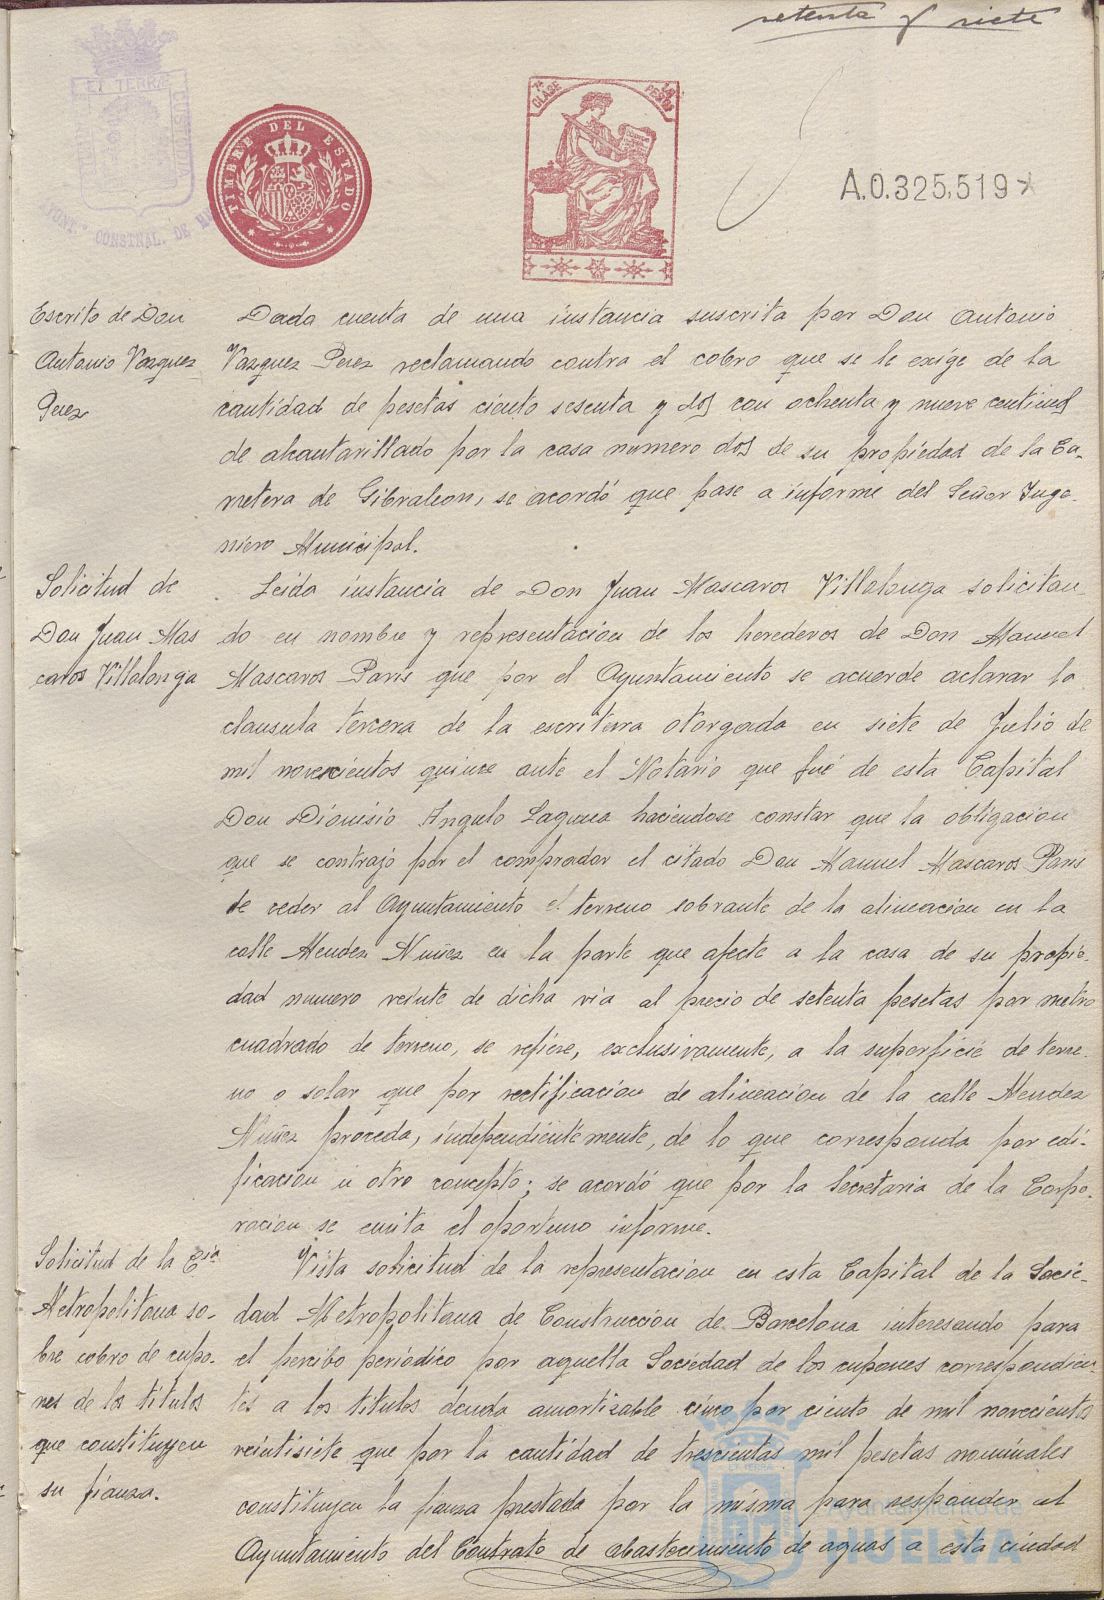 setenta y siete
ET TERRÆ
CUSTODIA
AYUNT.º CONSTNAL. DE
TIMBRE DEL ESTADO
7ª CLASE
PESETA
A.0.325,519
Escrito de Don
Antonio Vazquez
Perez
Dada cuenta de una instancia suscrita por Don Antonio
Vazquez Perez reclamando contra el cobro que se le exige de la
cantidad de pesetas ciento sesenta y dos con ochenta y nueve centimos
de alcantarillado por la casa numero dos de su propiedad de la Ca-
rretera de Gibraleon, se acordó que pase a informe del Señor Inge-
niero Municipal.
Solicitud de
Don Juan Mas
caros Villalonga
Leida instancia de Don Juan Mascaros Villalonga solicitan-
do en nombre y representacion de los herederos de Don Manuel
Mascaros Paris que por el Ayuntamiento se acuerde aclarar la
clausula tercera de la escritura otorgada en siete de Julio de
mil novecientos quince ante el Notario que fué de esta Capital
Don Dionisio Angulo Laguna haciendose constar que la obligacion
que se contrajo por el comprador el citado Don Manuel Mascaros Paris
de ceder al Ayuntamiento el terreno sobrante de la alineacion en la
calle Mendez Nuñez en la parte que afecte a la casa de su propie-
dad numero veinte de dicha via al precio de setenta pesetas por metro
cuadrado de terreno, se refiere, exclusivamente, a la superficie de terre-
no o solar que por rectificacion de alineacion de la calle Mendez
Nuñez proceda, independientemente, de lo que corresponda por edi-
ficacion u otro concepto; se acordó que por la Secretaria de la Corpo-
racion se emita el oportuno informe.
Solicitud de la Cia
Metropolitana so-
bre cobro de cupo-
nes de los titulos
que constituyen
su fianza.
Vista solicitud de la representacion en esta Capital de la Socie-
dad Metropolitana de Construccion de Barcelona interesando para
el percibo periódico por aquella Sociedad de los cupones correspondien-
tes a los titulos deuda amortizable cinco por ciento de mil novecientos
veintisiete que por la cantidad de trescientas mil pesetas nominales
constituyen la fianza prestada por la misma para responder al
Ayuntamiento del Contrato de abastecimiento de aguas a esta ciudad
Ayuntamiento de
HUELVA